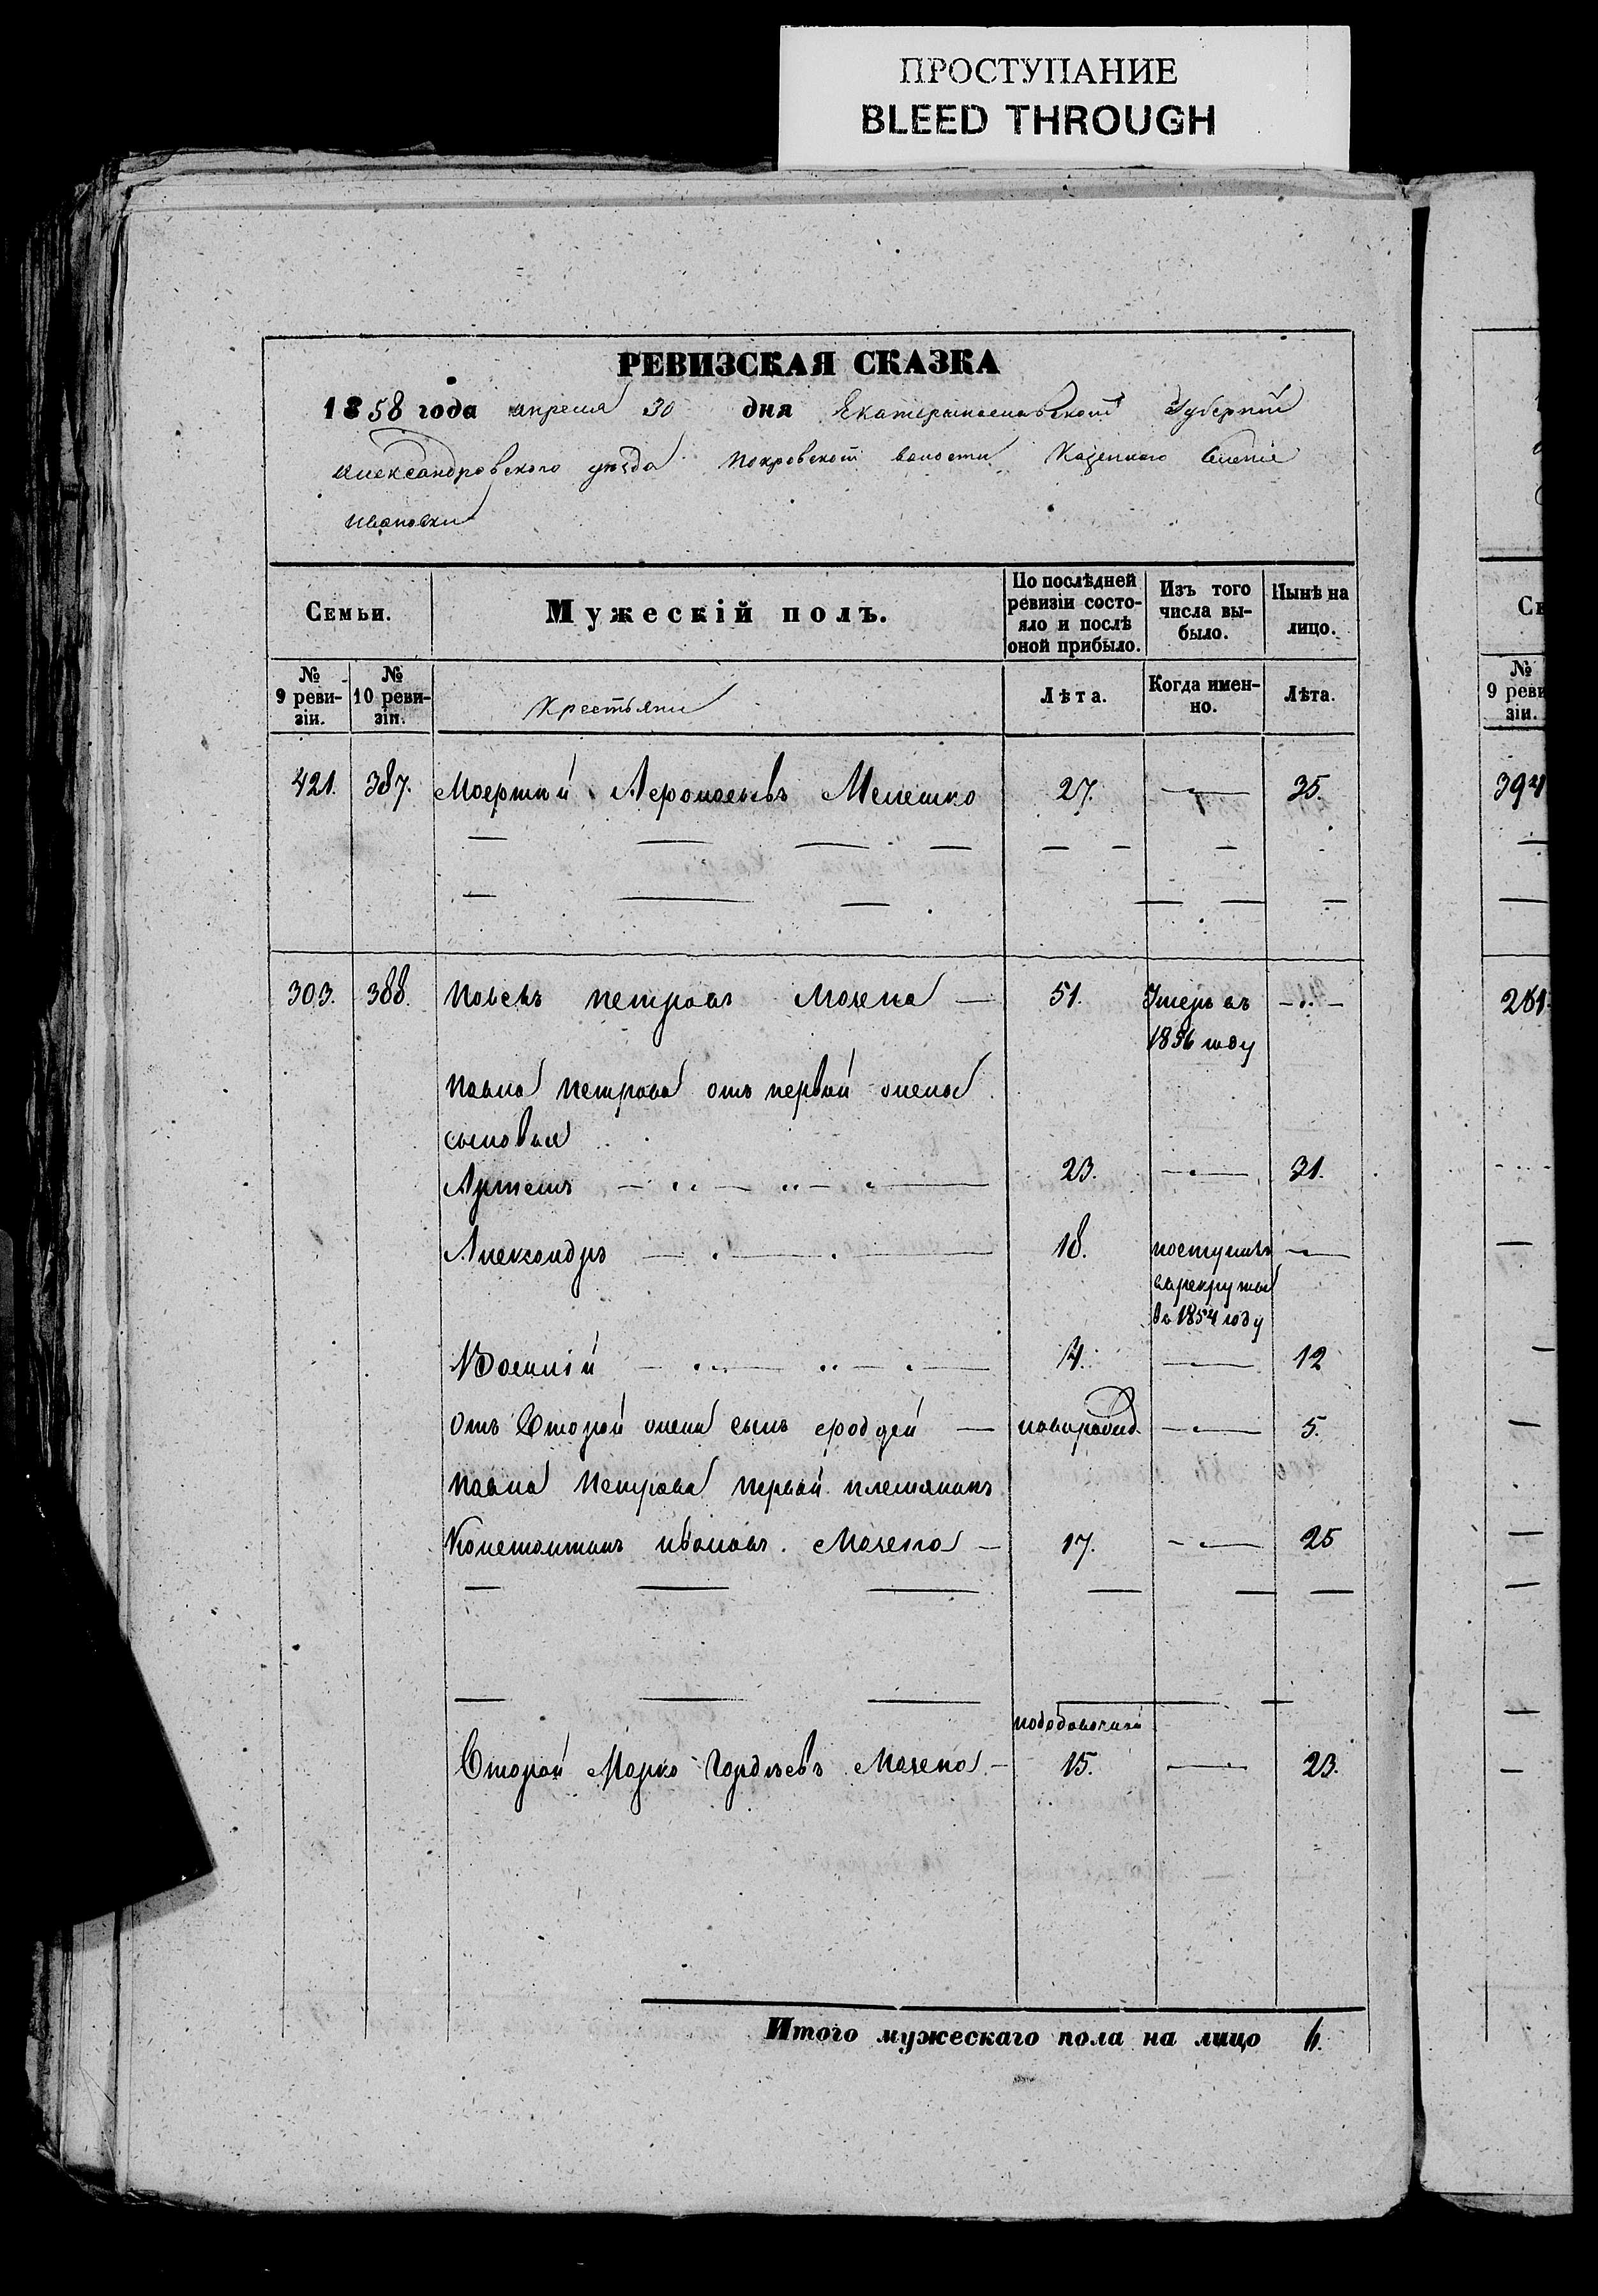 ПРОСТУПАНИЕ
BLEED THROUGH
РЕВИЗСКАЯ СКАЗКА
1858 года апреля 30 дня Екатеринославской Губернии
Александровского уезда Покровской волости Казенного Селения
Ивановки
Семьи.
Мужескій полъ.
По послѣдней ревизіи состо-яло и послѣ оной прибыло.
Изъ того числа вы-было.
Нынѣ на лицо.
№ 9 реви-зіи.
№ 10 реви-зіи.
Крестьяне
Лѣта.
Когда имен-но.
Лѣта.
421. 387. Мелешко 27. 35.
303. 388. Павелъ Петровъ 51. Умеръ въ
1856 году
Павла Петрова отъ первой жены
сыновья
Артемъ 23. 31.
Александръ 18. поступилъ
въ рекруты
въ 1854 году
Василій 4. 12
Отъ Второй жены сынъ новорожд. 5.
Павла Петрова первый племянникъ
Константинъ Ивановъ 17. 25
Второй Марко Гордѣевъ 15. 23.
Итого мужескаго пола на лицо 6.
Се
№ 9 реви зіи.
394
281